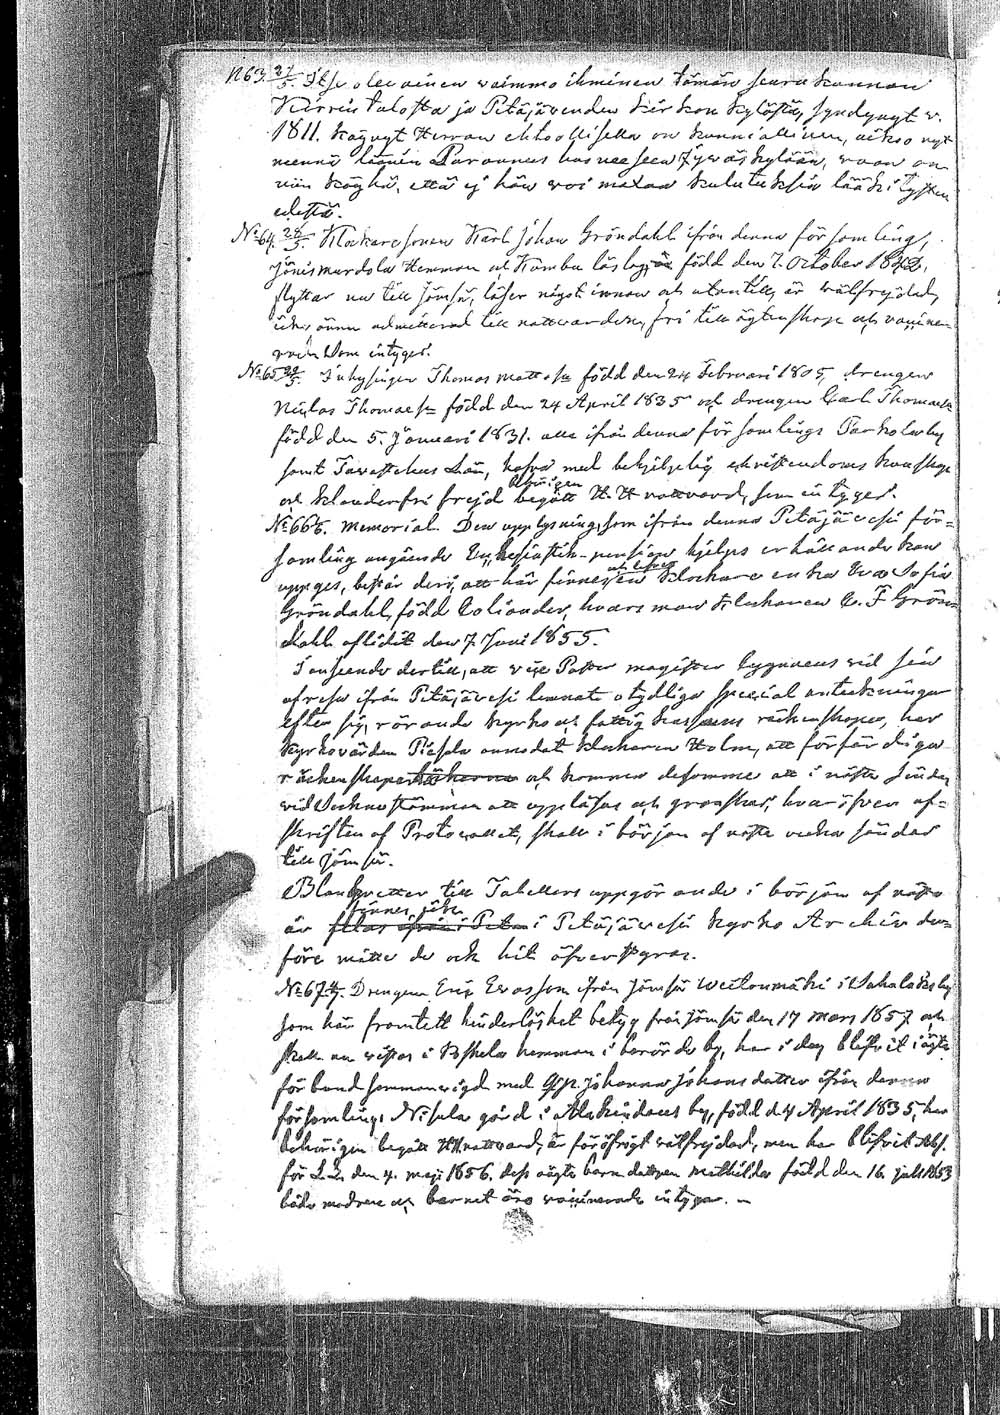 N63. 27/5. Itse olevainen vaimmo ihminen tämän seurakunnan
Kirris talosta ja Petäjäveden kirkon kylästä, syndynyt v.
1811. Käynyt Herran ehtoollisella on kunniallinen, aikoo nyt
mennä läänin Paranus huoneeseen Jyväskylään, vaan on
niin köyhä, että ej hän voi maxaa kulutuksia lääkityxen
edestä.
No 64. 28/5. Klockaresonen Karl Johan Gröndahl ifrån denna församling,
Hemman och Kumbu född den 7. October 1842,
flyttar nu till Jämsä, läser något innan och utantill, är wälfrejdad,
icke ännu admitterad till nattvarden, fri till ägtenskap och vaccine-
rad som intygas.
No 65. 29/5. Inhysingen Thomas Matts född den 24 Februari 1805, drengen
Niclas Thomass född den 24 April 1835 och drengen Carl Thomass
född den 5. Januari 1831. alla ifrån denna församlings by
samt Tavastehus Län, hafva med behjelpelig christendoms kunskap
och klanderfri frejd behörigen begått H. H. nattvard, som intygas.
No 66. Memorial. Den upplysning, som ifrån denna Petäjävesi för=
samling angående Ecklesiastik-pensions hjelps erhållande kan
uppges, består deri, att här finnes en och Klockare enka Eva Sofia
Gröndahl, född Coliander, hvars man Klockaren C. F. Grön=
dahl aflidit den 7. Juni 1855.
I anseende dertill, att vice Pastor magister Cygnaeus vid sin
afresa ifrån Petäjävesi lemnat otydliga special anteckningar
efter sig, rörande kyrko och fattig kassans räkenskaper, har
kyrkovärden Piesala anmodat klockaren Holm, att förfärdiga
räkenskaper och kommer desamma att i nästa Söndag
vid Sockne stämman att uppläsas och granskas, hvaröfver af=
skriften af Protocollet, skall i början af nästa vecka sändas
till Jämsä.
Blanketter till Tabellers uppgörande i början af nästa
år finnes icke i Petäjävesi Kyrko Archiv der=
före måtte de ock hit öfverskickas.
No 67. Drengen Eric Ersson ifrån Jämsä i by
som här framtett hinderlöshet betyg från Jämsä den 17 mars 1857 och
skall nu vistas i hemman i berörde by, har i dag blifvit i ägta
förbund sammanvigd med Johanna Johansdotter ifrån denna
församlings Nisula gård i by, född d. 4 April 1835, har
behörigen begått HH nattvard, är föröfrigt wälfrejdad, men har blifvit Abs.
för L. L. den 4. maji 1856. dess oägta barn dottren Mathilda född den 16. juli 1853
både modren och barnet äro vaccinerade intygar. —